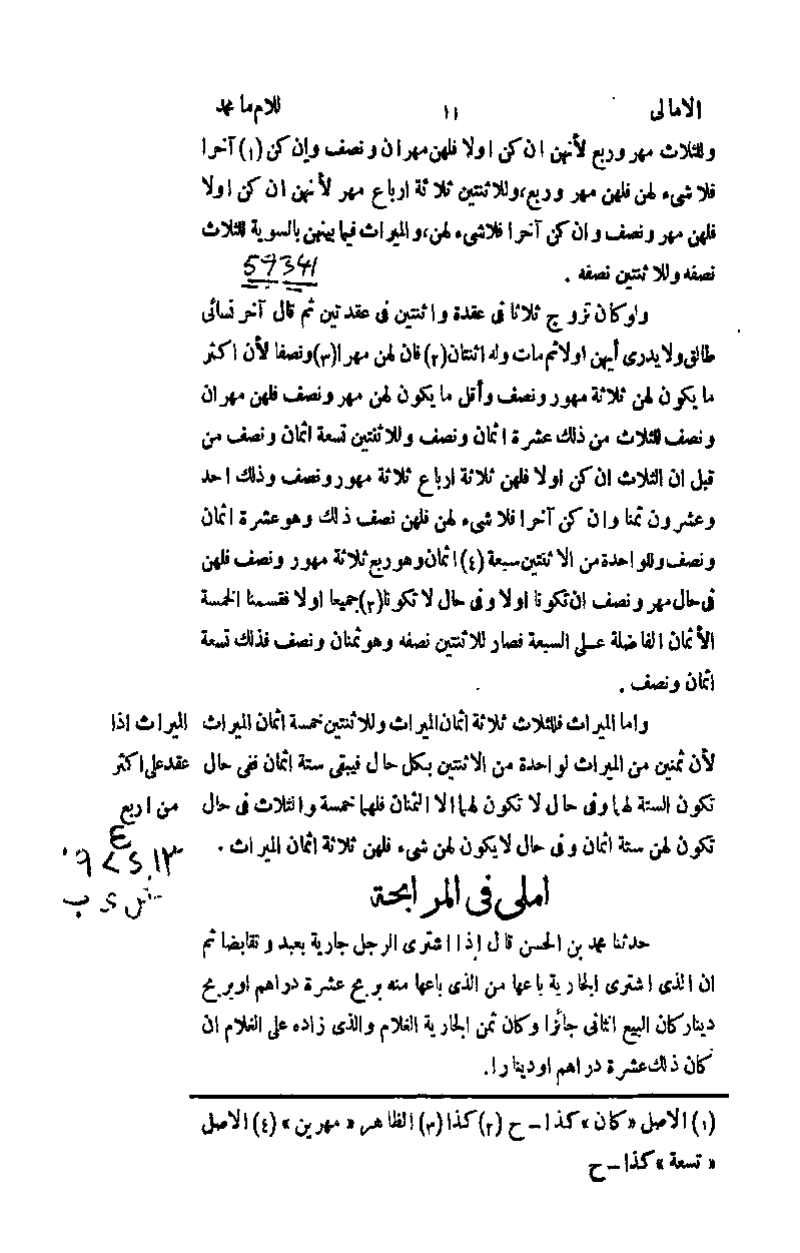 الامالى ١١ للامام محمد
وللثلاث مهر وربع لأنهن ان كن اولا فلهن مهران ونصف وإن كن (١) آخرا
فلا شىء لهن فلهن مهر وربع، وللاثنتين ثلاثة ارباع مهر لأنهن ان كن اولا
فلهن مهر ونصف وان كن آخرا فلاشىء لهن، والميراث فيما بينهن بالسوية للثلاث
نصفه وللاثنتين نصفه .
59341
ولوكان تزوج ثلاثا فى عقدة واثنتين فى عقدتين ثم قال آخر نسائى
طالق ولا يدرى أيهن اولا ثم مات وله اثنتان (٢) فان لهن مهرا (٣) ونصفا لأن اكثر
ما يكون لهن ثلاثة مهور ونصف وأقل ما يكون لهن مهر ونصف فلهن مهران
ونصف للثلاث من ذلك عشرة اثمان ونصف وللاثنتين تسعة اثمان ونصف من
قبل ان الثلاث ان كن اولا فلهن ثلاثة ارباع ثلاثة مهور ونصف وذلك احد
وعشرون ثمنا وان كن آخرا فلا شىء لهن فلهن نصف ذلك وهو عشرة اثمان
ونصف وللواحدة من الاثنتين سبعة (٤) اثمان وهو ربع ثلاثة مهور ونصف فلهن
فى حال مهر ونصف ان تكونا اولا وفى حال لا تكونا (٢) جميعا اولا فقسمنا الخمسة
الأثمان الفاضلة عـلى السبعة فصار للاثنتين نصفه وهو ثمنان ونصف فذلك تسعة
اثمان ونصف .
واما الميراث فللثلاث ثلاثة اثمان الميراث وللاثنتين خمسة اثمان الميراث
لأن ثمنين من الميراث لواحدة من الاثنتين بكل حال فيبقى ستة اثمان ففى حال
تكون الستة لهما وفى حال لا تكون لهما الا الثمنان فلهما خمسة والثلاث فى حال
تكون لهن ستة اثمان وفى حال لا يكون لهن شىء فلهن ثلاثة اثمان الميراث .
الميراث اذا
عقد على اكثر
من اربع
املى فى المرابحة
حدثنا محمد بن الحسن قال إذا اشترى الرجل جارية بعبد وتقابضا ثم
ان الذى اشترى الجارية باعها من الذى باعها منه بربح عشرة دراهم اوبربح
دينار كان البيع الثانى جائزا وكان ثمن الجارية الغلام والذى زاده على الغلام ان
كان ذلك عشرة دراهم اودينارا.
(١) الاصل « كان » كذا ـ ح (٢) كذا (٣) الظاهر « مهرين » (٤) الاصل
« تسعة » كذا ـ ح